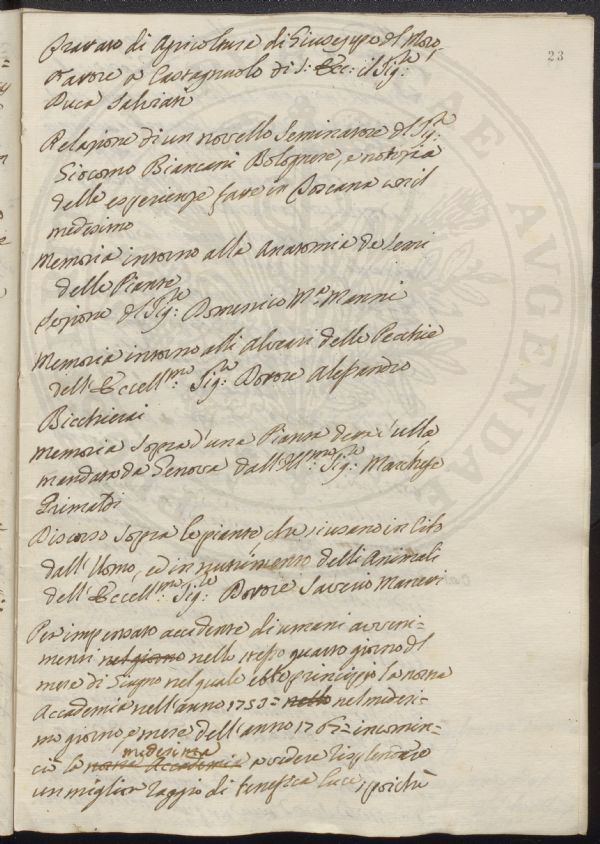 23
Trattato di Agricoltura di Giuseppe del Moro,
Fattore a Castagnuolo di S: Ecc: il Sig:re
Duca Salviati
Relazione di un novello Seminatore del Sig:re
Giacomo Biancani Bolognese, e notizia
delle esperienze fatte in Toscana con il
medesimo
Memoria intorno alla Anatomia de Semi
delle Piante
Lezione del Sig:re Domenico M:a Manni
Memoria intorno alli alveari delle Pecchie
dell'Eccell:mo Sig:re Dottore Alessandro
Bicchierai
Memoria sopra d'una Pianta detta Sulla
mandato da Genova dall'Ill:mo Sig:re Marchese
Grimaldi
Discorso sopra le piante che si usano in Cibo
dall'Uomo, ed in nutrimento delli Animali
dell'Eccell:mo Sig:re Dottore Saverio Manetti
Per impensato accidente di umani avveni=
menti nel giorno nello stesso quarto giorno del
mese di Giugno nel quale ebbe principio la nostra
Accademia nell'anno 1753= nello nel medesi=
mo giorno e mese dell'anno 176 = incomin=
ciò la nostra Accademia medesima a vedere risplendere
un miglior raggio di benefica luce, poichè
AVGENDAE